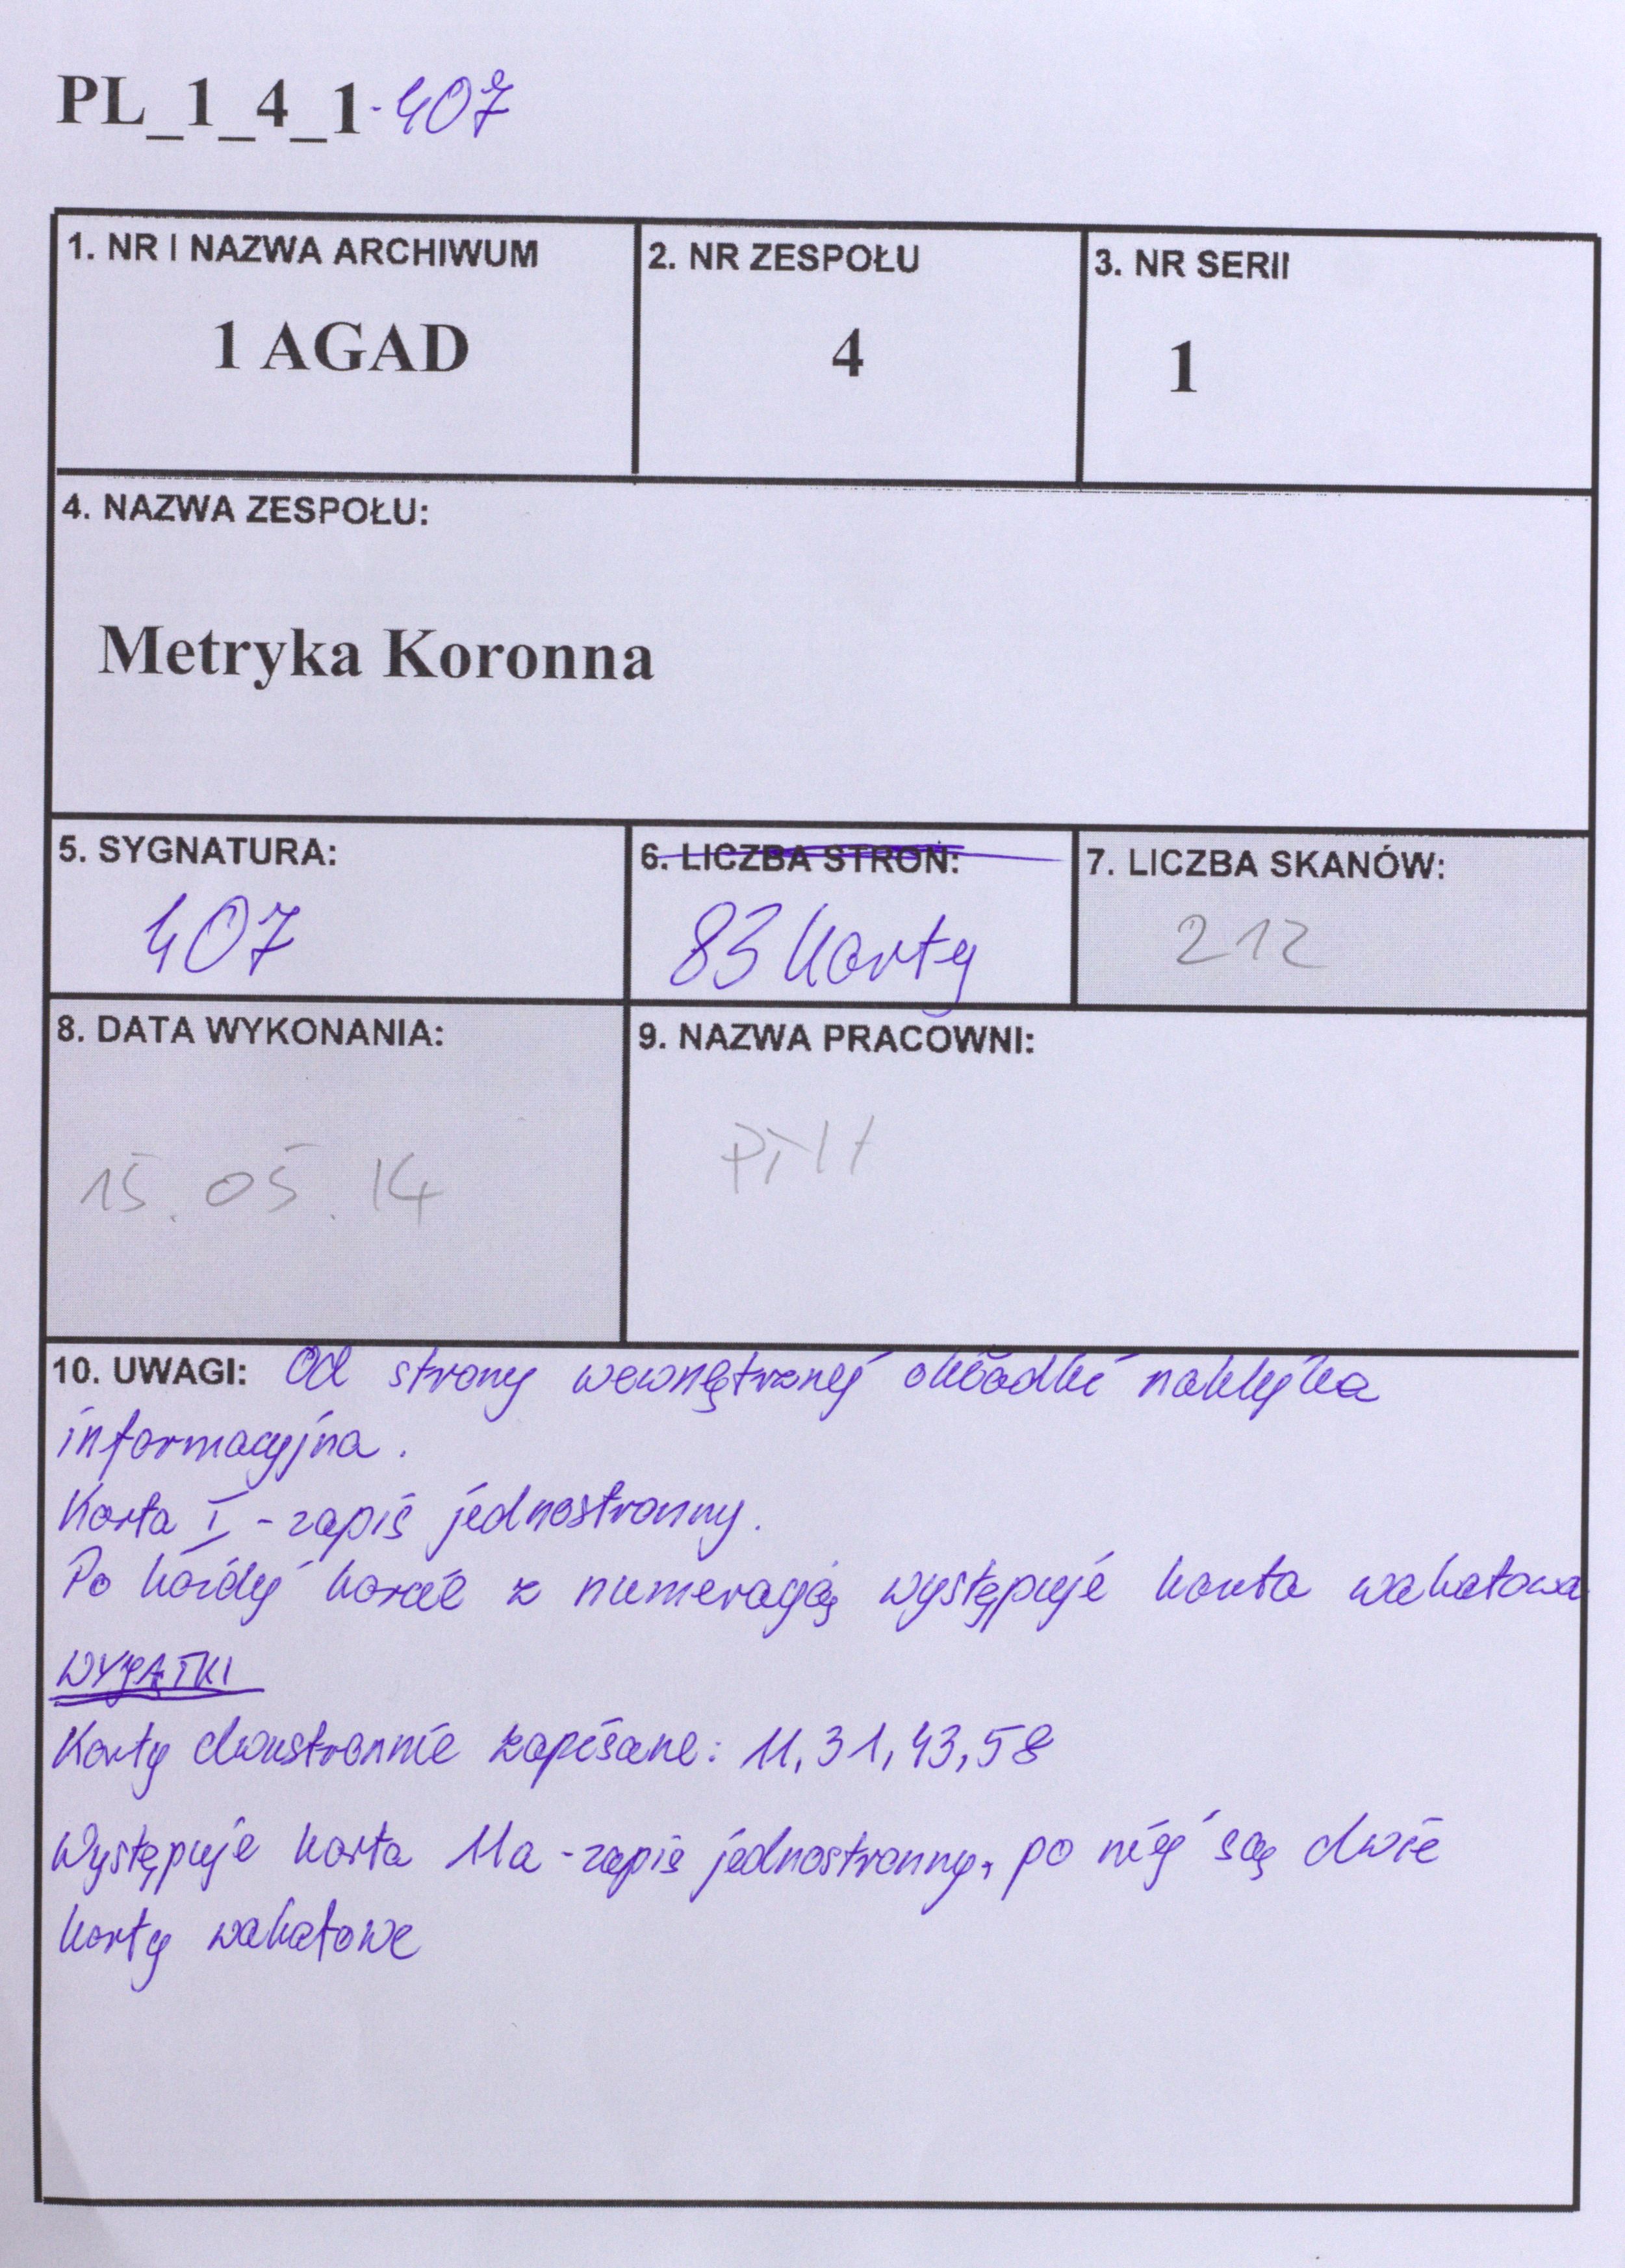 PL_1_4_1-407
1. NR I NAZWA ARCHIWUM
1 AGAD
2. NR ZESPOŁU
4
3. NR SERII
1
4. NAZWA ZESPOŁU:
Metryka Koronna
5. SYGNATURA:
407
6. LICZBA STRON:
83 karty
7. LICZBA SKANÓW:
212
8. DATA WYKONANIA:
15.05.14
9. NAZWA PRACOWNI:
10. UWAGI: Od strony wewnętrznej okładki naklejka
informacyjna.
Karta I - zapis jednostronny.
Po każdej karcie z numeracją występuje karta wakatowa
WYJĄTKI
Karty dwustronnie zapisane: 11, 31, 43, 58
Występuje karta 11a - zapis jednostronny, po niej są dwie
karty wakatowe